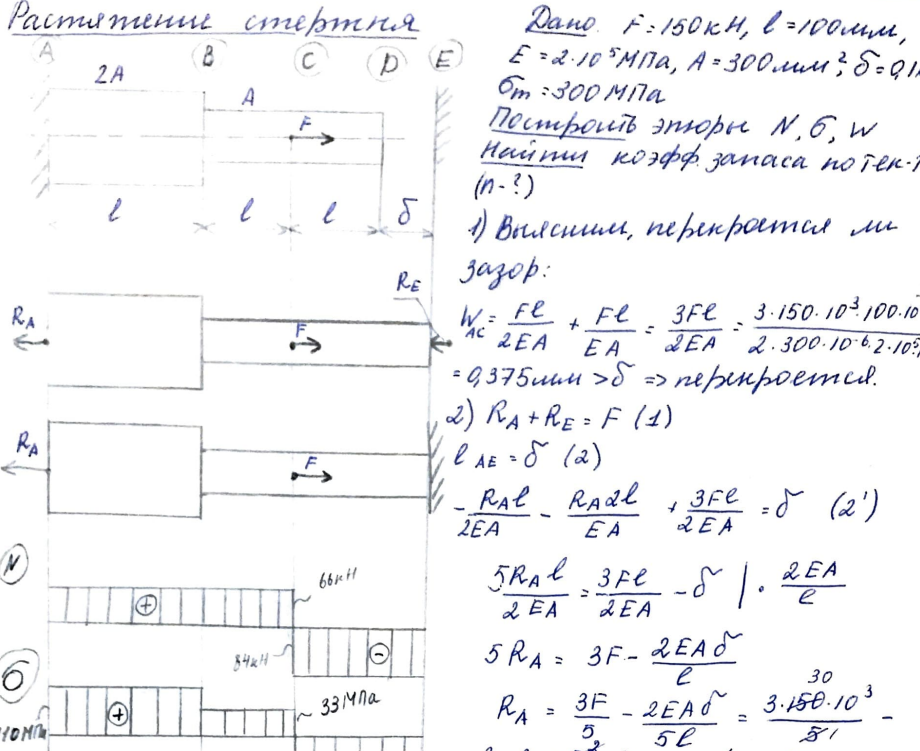 Растяжение стержня
A B C D E
2A
A
F
l l l δ
R_A
F
R_E
R_A
F
N
66кН
84кН
+
-
σ
+
33МПа
Дано F=150кН, l=100мм,
E=2·10⁵МПа, A=300мм², δ=0,1
σт=300МПа
Построить эпюры N, σ, W
Найти коэфф. запаса по тек-
(n-?)
1) Выясним, перекроется ли
зазор:
W_AC = Fl/2EA + Fl/EA = 3Fl/2EA = 3·150·10³·100·10/2·300·10⁻⁶·2·10⁵
=0,375мм>δ => перекроется.
2) R_A+R_E=F (1)
l_AE=δ (2)
-R_Al/2EA - R_A2l/EA + 3Fl/2EA = δ (2')
5R_Al/2EA = 3Fl/2EA - δ | · 2EA/l
5R_A = 3F - 2EAδ/l
R_A = 3F/5 - 2EAδ/5l = 3·150·10³/51 -
30